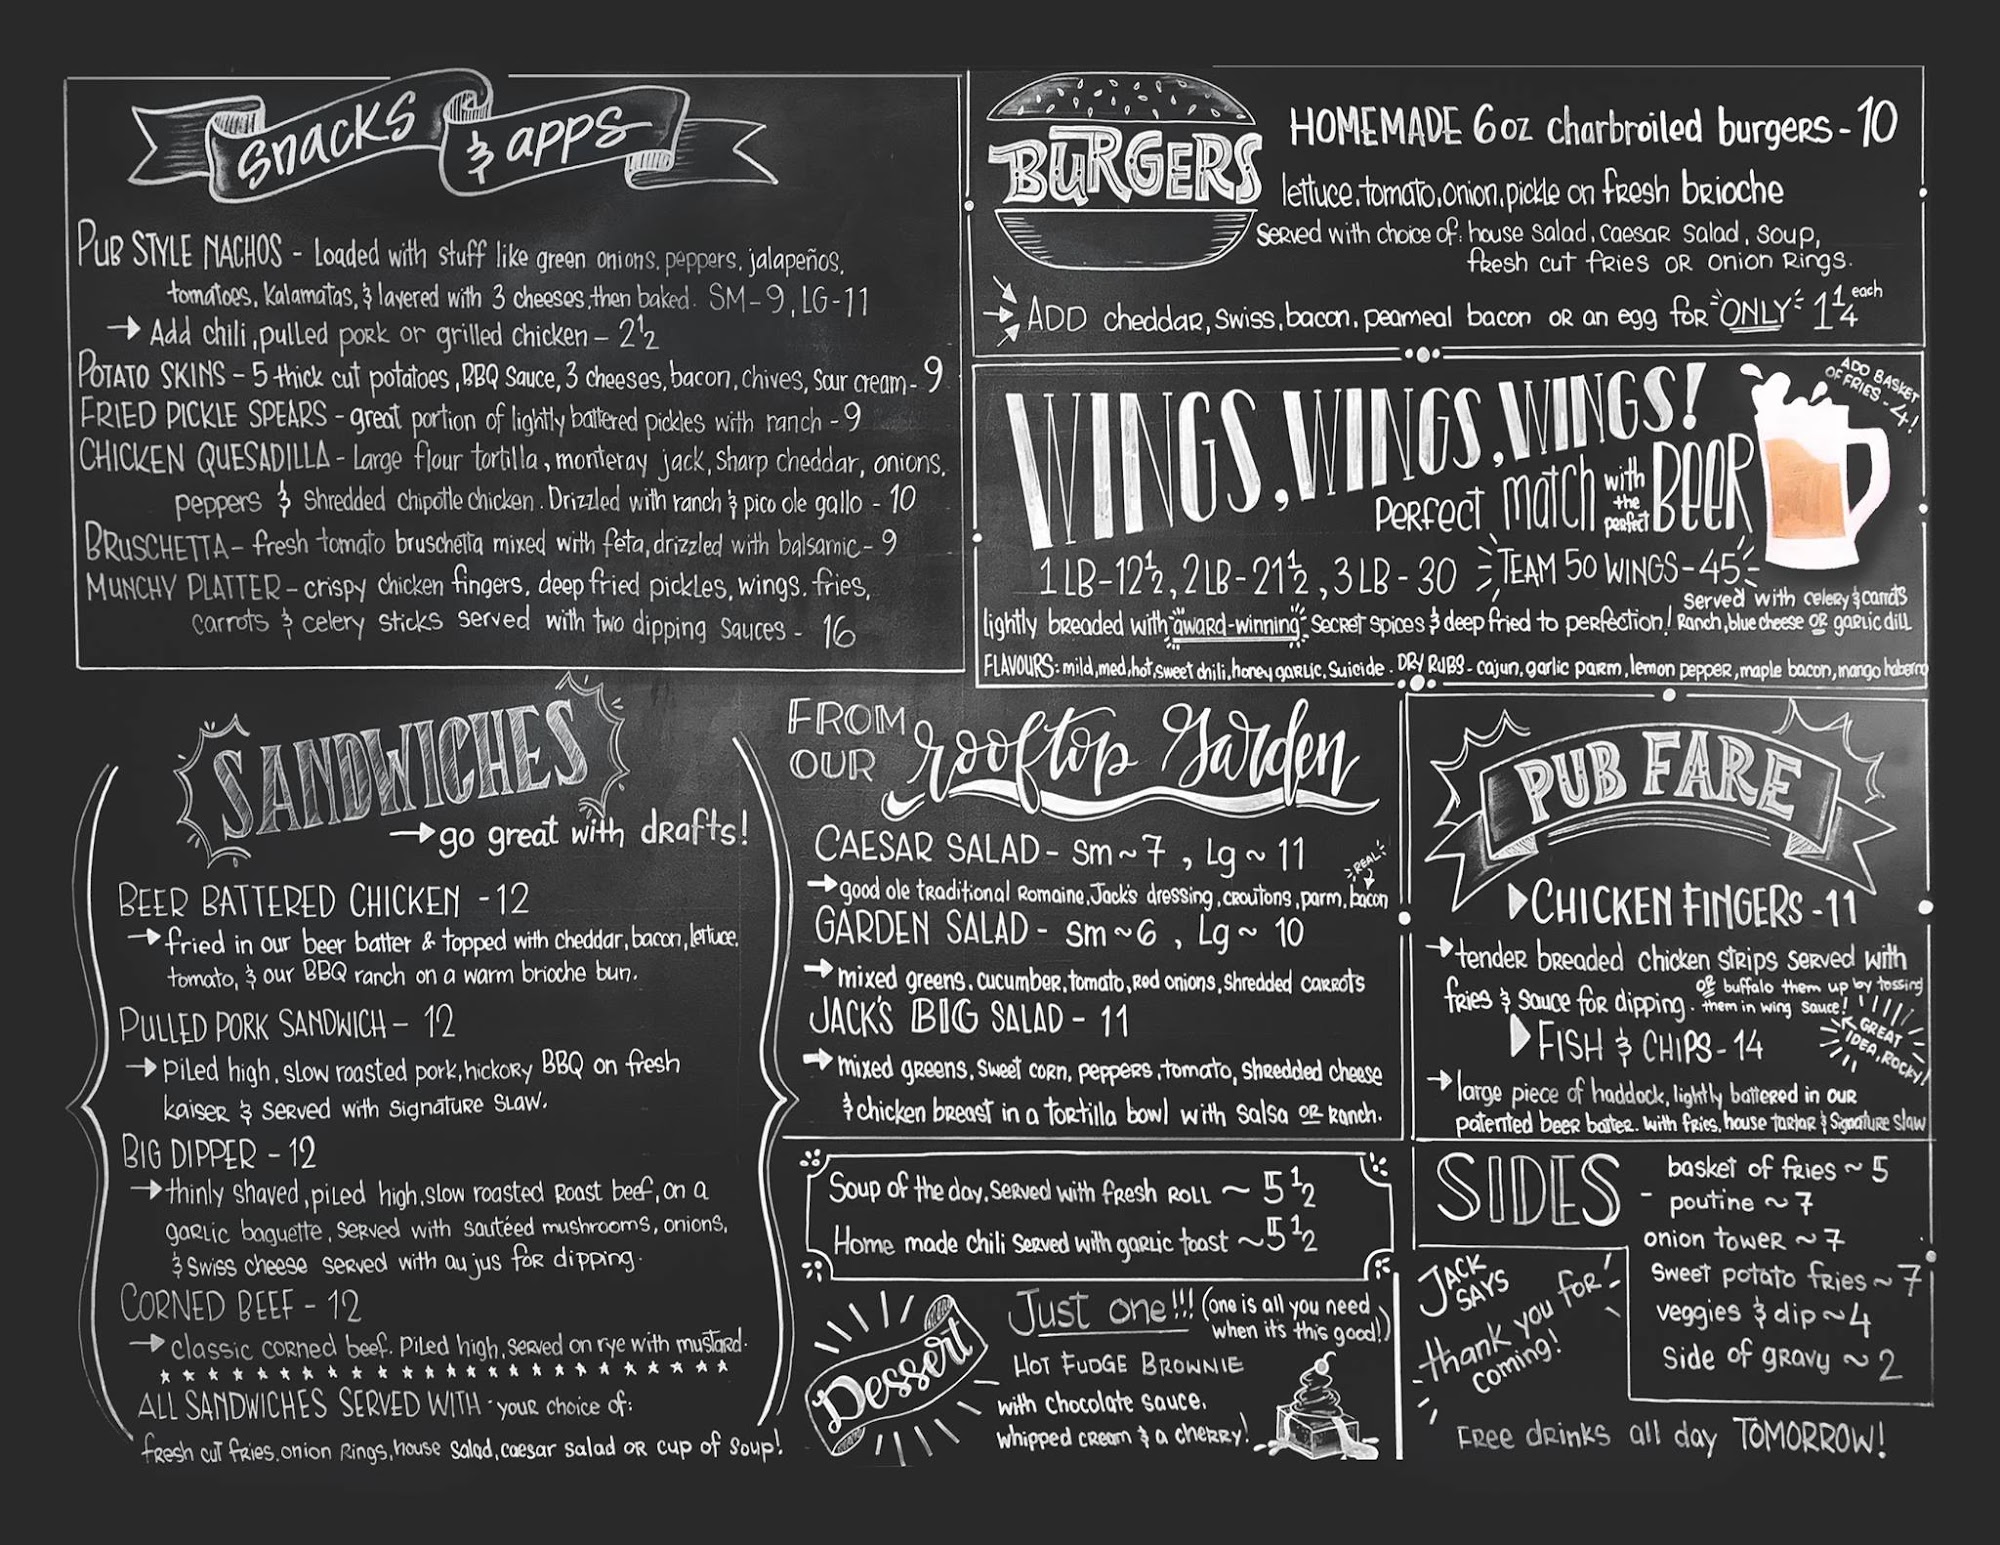 Snacks & apps
PUB STYLE NACHOS - Loaded with stuff like green onions, peppers, jalapeños,
tomatoes, Kalamatas, & layered with 3 cheeses, then baked. SM-9, LG-11
→ Add chili, pulled pork or grilled chicken - 2½
POTATO SKINS - 5 thick cut potatoes, BBQ Sauce, 3 cheeses, bacon, chives, Sour cream - 9
FRIED PICKLE SPEARS - great portion of lightly battered pickles with ranch - 9
CHICKEN QUESADILLA - Large flour tortilla, monteray jack, Sharp cheddar, onions,
peppers & Shredded chipotle chicken. Drizzled with ranch & pico ole gallo - 10
BRUSCHETTA - fresh tomato bruschetta mixed with feta, drizzled with balsamic - 9
MUNCHY PLATTER - crispy chicken fingers, deep fried pickles, wings, fries,
carrots & celery sticks served with two dipping sauces - 16
BURGERS
HOMEMADE 6oz charbroiled burgers - 10
lettuce, tomato, onion, pickle on fresh brioche
Served with choice of: house salad, caesar salad, soup,
fresh cut fries or onion rings.
ADD cheddar, swiss, bacon, peameal bacon or an egg for ONLY 1¼ each
WINGS, WINGS, WINGS!
ADD BASKET
OF FRIES - 4!
Perfect match with the perfect BEER
1 LB - 12½, 2 LB - 21½, 3 LB - 30 TEAM 50 WINGS - 45
Served with celery & carrots
lightly breaded with award-winning secret spices & deep fried to perfection! Ranch, blue cheese or garlic dill
FLAVOURS: mild, med, hot, sweet chili, honey garlic, Suicide. DRY RUBS - cajun, garlic parm, lemon pepper, maple bacon, mango habenro
SANDWICHES
→ go great with drafts!
BEER BATTERED CHICKEN - 12
→ fried in our beer batter & topped with cheddar, bacon, lettuce,
tomato, & our BBQ ranch on a warm brioche bun.
PULLED PORK SANDWICH - 12
→ piled high, slow roasted pork, hickory BBQ on fresh
kaiser & served with signature slaw.
BIG DIPPER - 12
→ thinly shaved, piled high, slow roasted Roast beef, on a
garlic baguette, served with sautéed mushrooms, onions,
& swiss cheese served with au jus for dipping.
CORNED BEEF - 12
→ classic corned beef. Piled high, served on rye with mustard.
ALL SANDWICHES SERVED WITH - your choice of:
fresh cut fries, onion rings, house salad, caesar salad or cup of soup!
FROM OUR rooftop Garden
CAESAR SALAD - Sm ~ 7, Lg ~ 11
REAL!
→ good ole traditional Romaine, Jack's dressing, croutons, parm, bacon
GARDEN SALAD - Sm ~ 6, Lg ~ 10
→ mixed greens, cucumber, tomato, Red onions, shredded carrots
JACK'S BIG SALAD - 11
→ mixed greens, sweet corn, peppers, tomato, shredded cheese
& chicken breast in a tortilla bowl with salsa or ranch.
Soup of the day, served with fresh roll ~ 5½
Home made chili served with garlic toast ~ 5½
Dessert
Just one!!! (one is all you need
when it's this good!)
HOT FUDGE BROWNIE
with chocolate sauce,
whipped cream & a cherry!
PUB FARE
CHICKEN FINGERS - 11
→ tender breaded chicken strips served with
fries & sauce for dipping. or buffalo them up by tossing
them in wing sauce!
GREAT
IDEA, ROCKY!
FISH & CHIPS - 14
→ large piece of haddock, lightly battered in our
patented beer batter. with fries, house tartar & signature slaw
SIDES
basket of fries ~ 5
- poutine ~ 7
onion tower ~ 7
sweet potato fries ~ 7
veggies & dip ~ 4
side of gravy ~ 2
JACK SAYS
thank you for
coming!
FREE drinks all day TOMORROW!